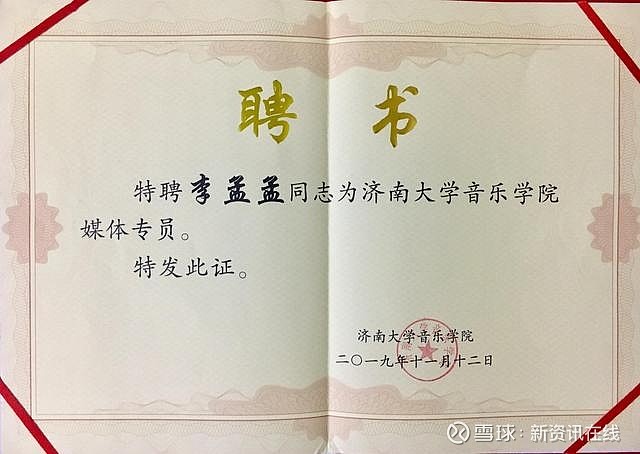 聘书
特聘李孟孟同志为济南大学音乐学院
媒体专员。
特发此证。
济南大学音乐学院
二〇一九年十一月十二日
雪球：新资讯在线